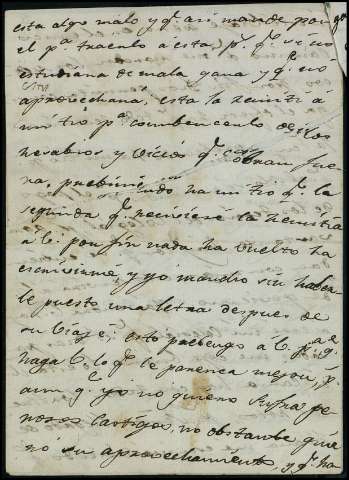 esta algo malo y q.e asi mande por
el p.a traerlo a esta, p.r q.e si no
estudiana de mala gana y q.e no
aprovechaná, esta la remití á
mi tio p.a combencerlo de los
resabios y vicios q.e
ndo ha mi tio q.e la
segunda q.e reciviese la remitiera
a V. por fin nada ha vuelto ha
escrivirme, y yo mancho sin haber
le puesto una letra despues de
su viaje; esto prebengo á V. p.a q.e
haga V. lo q.e le paresca mejor, p.
aun q.e yo no quiero sufra pe
nosos castigos, no obstante quie
ro su aprovechamiento, y q.e ha